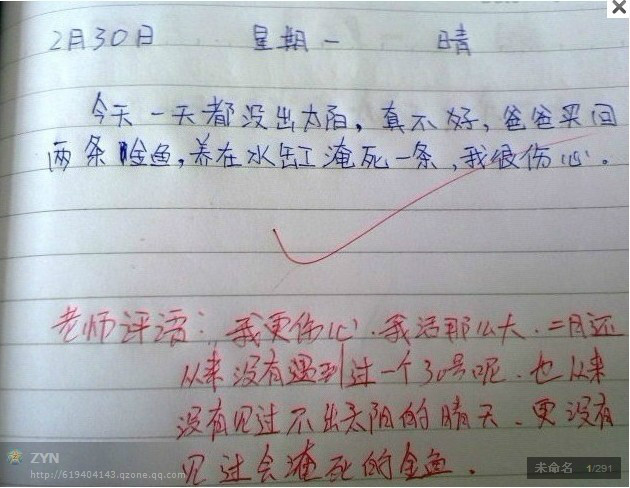 2月30日 星期一 晴
今天一天都没出太阳，真不好，爸爸买回
两条金鱼，养在水缸淹死一条，我很伤心。
老师评语：我更伤心．我活那么大．二月还
从来没有遇到过一个30号呢．也从来
没有见过不出太阴的晴天．更没有
见过会淹死的金鱼．
ZYN
http://619404143.qzone.qq.com
未命名 1/291